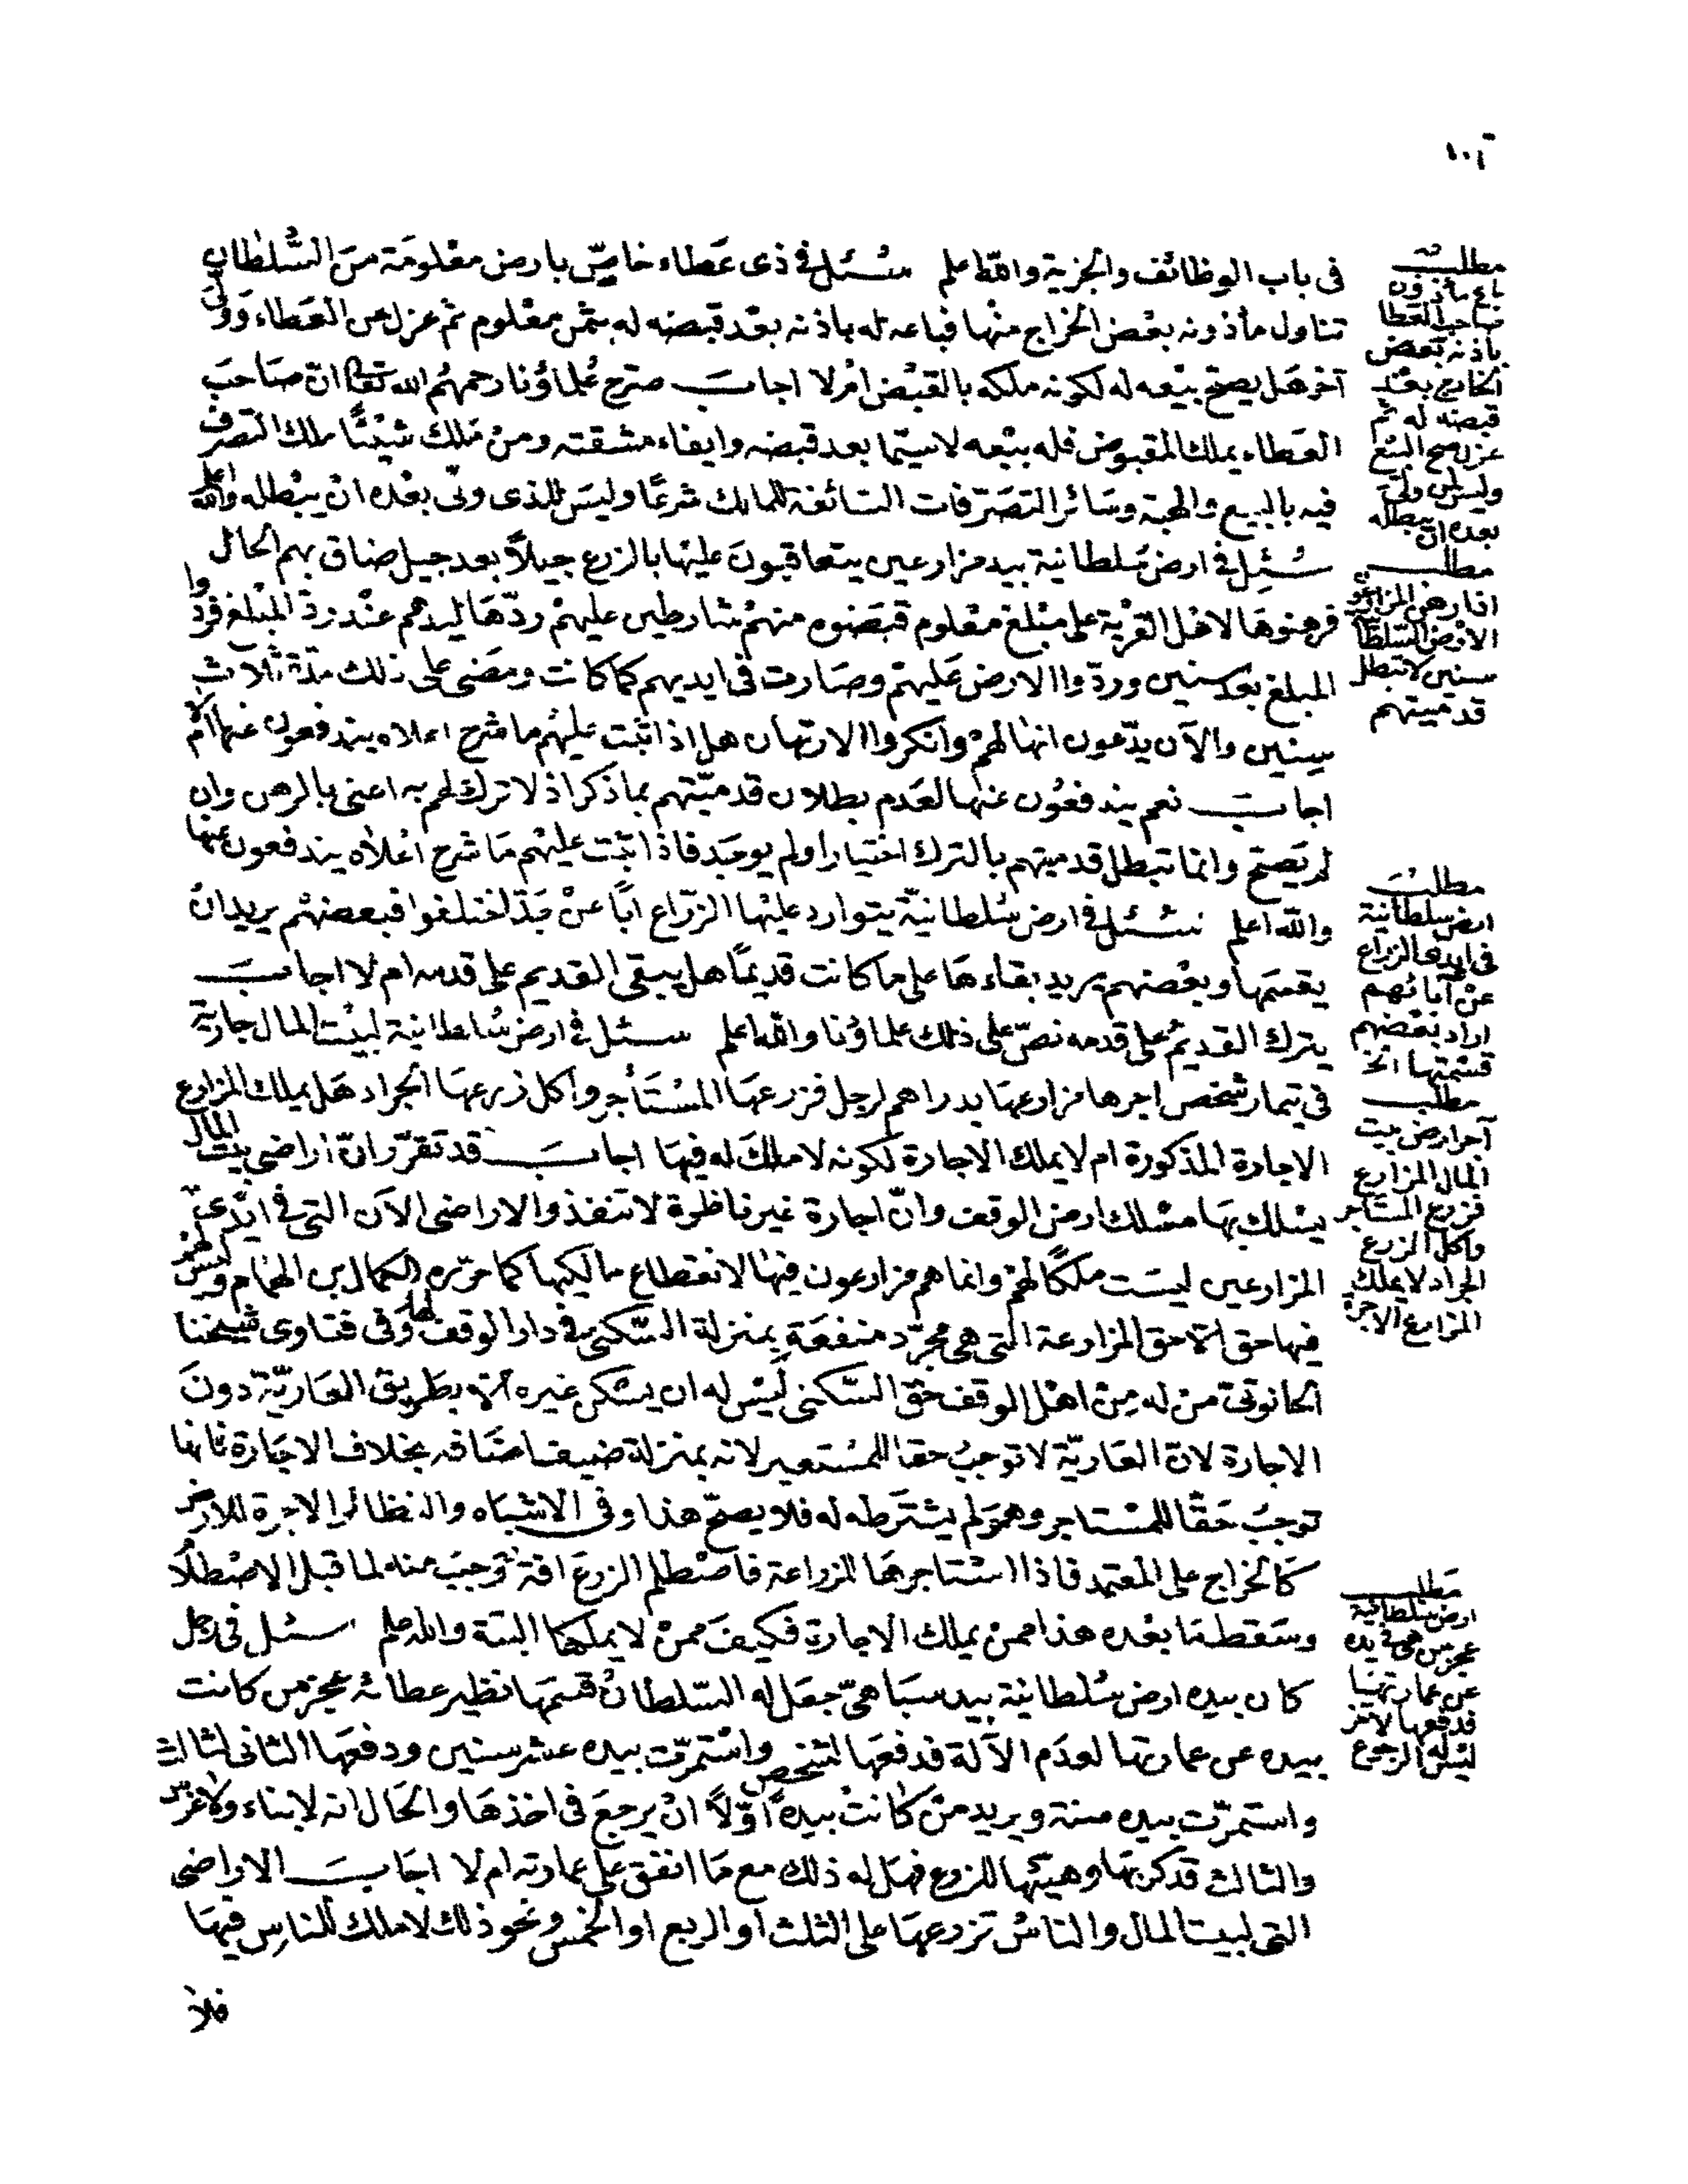 فى باب الوظائف والجزية والله اعلم سئل فى ذى عطاء خاصّ بارض معلومة من السلطان
تناول مأذونه بعض الخراج منها فباعه له باذنه بعد قبضه له بثمن معلوم ثم عزل عن العطاء وولّى
آخر هل يصح بيعه له لكونه ملكه بالقبض ام لا اجاب صرح علماؤنا رحمهم الله تعالى انّ صاحب
العطاء يملك المقبوض فله بيعه لاسيّما بعد قبضه وايفاء مشقته ومن ملك شيئًا ملك التصرف
فيه بالبيع والهبة وسائر التصرّفات السائغة للمالك شرعًا وليس للذى ولّى بعده ان يبطله والله اعلم
سُئِل فى ارض سلطانية بيد مزارعين يتعاقبون عليها بالزرع جيلاً بعد جيل ضاق بهم الحال
فرهنوها لاهل القرية على مبلغ معلوم قبضوه منهم شارطين عليهم ردّها ليدهم عند ردّ المبلغ فردّوا
المبلغ بعد سنين وردّوا الارض عليهم وصارت فى ايديهم كما كانت ومضى على ذلك مدّة ثلاث
سنين والآن يدّعون انها لهم وانكروا الارتهان هل اذا ثبت عليهم ما شرح اعلاه يندفعون عنها ام لا
اجاب نعم يندفعون عنها لعدم بطلان قدميّتهم بما ذكر اذ لا ترك لهم به اعنى بالرهن وان
لم يصحّ وانما تبطل قدميتهم بالترك اختيارا ولم يوجد فاذا ثبت عليهم ما شرح اعلاه يندفعون عنها
والله اعلم سئل فى ارض سلطانيّة يتوارد عليها الزرّاع ابًا عن جدّ اختلفوا فبعضهم يريد ان
يقسمها وبعضهم يريد بقاءها على ما كانت قديمًا هل يبقى القديم على قدمه ام لا اجاب
يترك القديم على قدمه نصّ على ذلك علماؤنا والله اعلم سئل فى ارض سلطانية لبيت المال جارية
فى تيمار شخص اجرها مزارعها بدراهم لرجل فزرعها المستأجر واكل زرعها الجراد هل يملك المزارع
الاجارة المذكورة ام لا يملك الاجارة لكونه لا ملك له فيها اجاب قد تقرّر انّ اراضى بيت المال
يسلك بها مسلك ارض الوقف وانّ اجارة غير ناظره لا تنفذ والاراضى الآن التى فى ايدى
المزارعين ليست ملكًا لهم وانما هم مزارعون فيها لانقطاع مالكيها كما حرّره الكمال بن الهمام وليس لهم
فيها حق الا حق المزارعة التى هى مجرّد منفعة بمنزلة السكنى فى دار الوقف لها وفى فتاوى شيخنا
الحانوتى من له من اهل الوقف حق السكنى ليس له ان يسكن غيره الا بطريق العاريّة دون
الاجارة لانّ العاريّة لا توجب حقا للمستعير لانه بمنزلة ضيف اضافه بخلاف الاجارة فانها
توجب حقًا للمستاجر وهو لم يشترطه له فلا يصحّ هذا وفى الاشباه والنظائر الاجرة للارض
كالخراج على المعتمد فاذا استاجرها للزراعة فاصطلم الزرع افة وجب منه لما قبل الاصطلام
وسقط ما بعده هذا ممن يملك الاجارة فكيف ممن لا يملكها البتة والله اعلم سئل فى رجل
كان بيده ارض سلطانية بيد سباهىّ جعل له السلطان قسمها نظير عطائه عجز من كانت
بيده عن عمارتها لعدم الآلة فدفعها لشخص واستمرّت بيده عشر سنين ودفعها الثانى لثالث
واستمرّت بيده سنة ويريد من كانت بيده اوّلاً ان يرجع فى اخذها والحال انه لابناء ولا غرس
والثالث قد كربها وهيّئها للزرع فهل له ذلك مع ما انفق على عمارته ام لا اجاب الاراضى
التى لبيت المال والناس تزرعها على الثلث او الربع او الخمس ونحو ذلك لا ملك للناس فيها
فلا
مطلب
باع مأذون
صاحب العطا
باذنه بعض
الخارج بعد
قبضه له ثم
عزل صح البيع
وليس لمن ولى
بعده ان يبطله
مطلب
اذا رهن المزارعو
الارض السلطا
سنين لا تبطل
قدميتهم
مطلب
ارض سلطانية
فى ايدى الزراع
عن آبائهم
اراد بعضهم
قسمتها الخ
مطلب
آجر ارض بيت
المال المزارع
فزرع المستاجر
واكل الزرع
الجراد لا يملك
المزارع الاجرة
مطلب
ارض سلطانية
عجز من هى فى يده
عن عمارتها
فدفعها لآخر
ليس له الرجوع